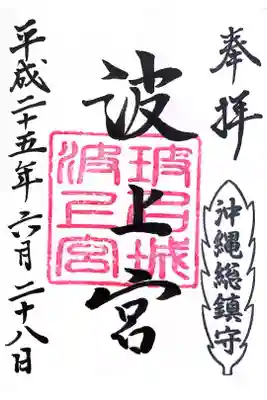 奉拝
沖縄総鎮守
波上宮
波上宮
平成二十五年六月二十八日